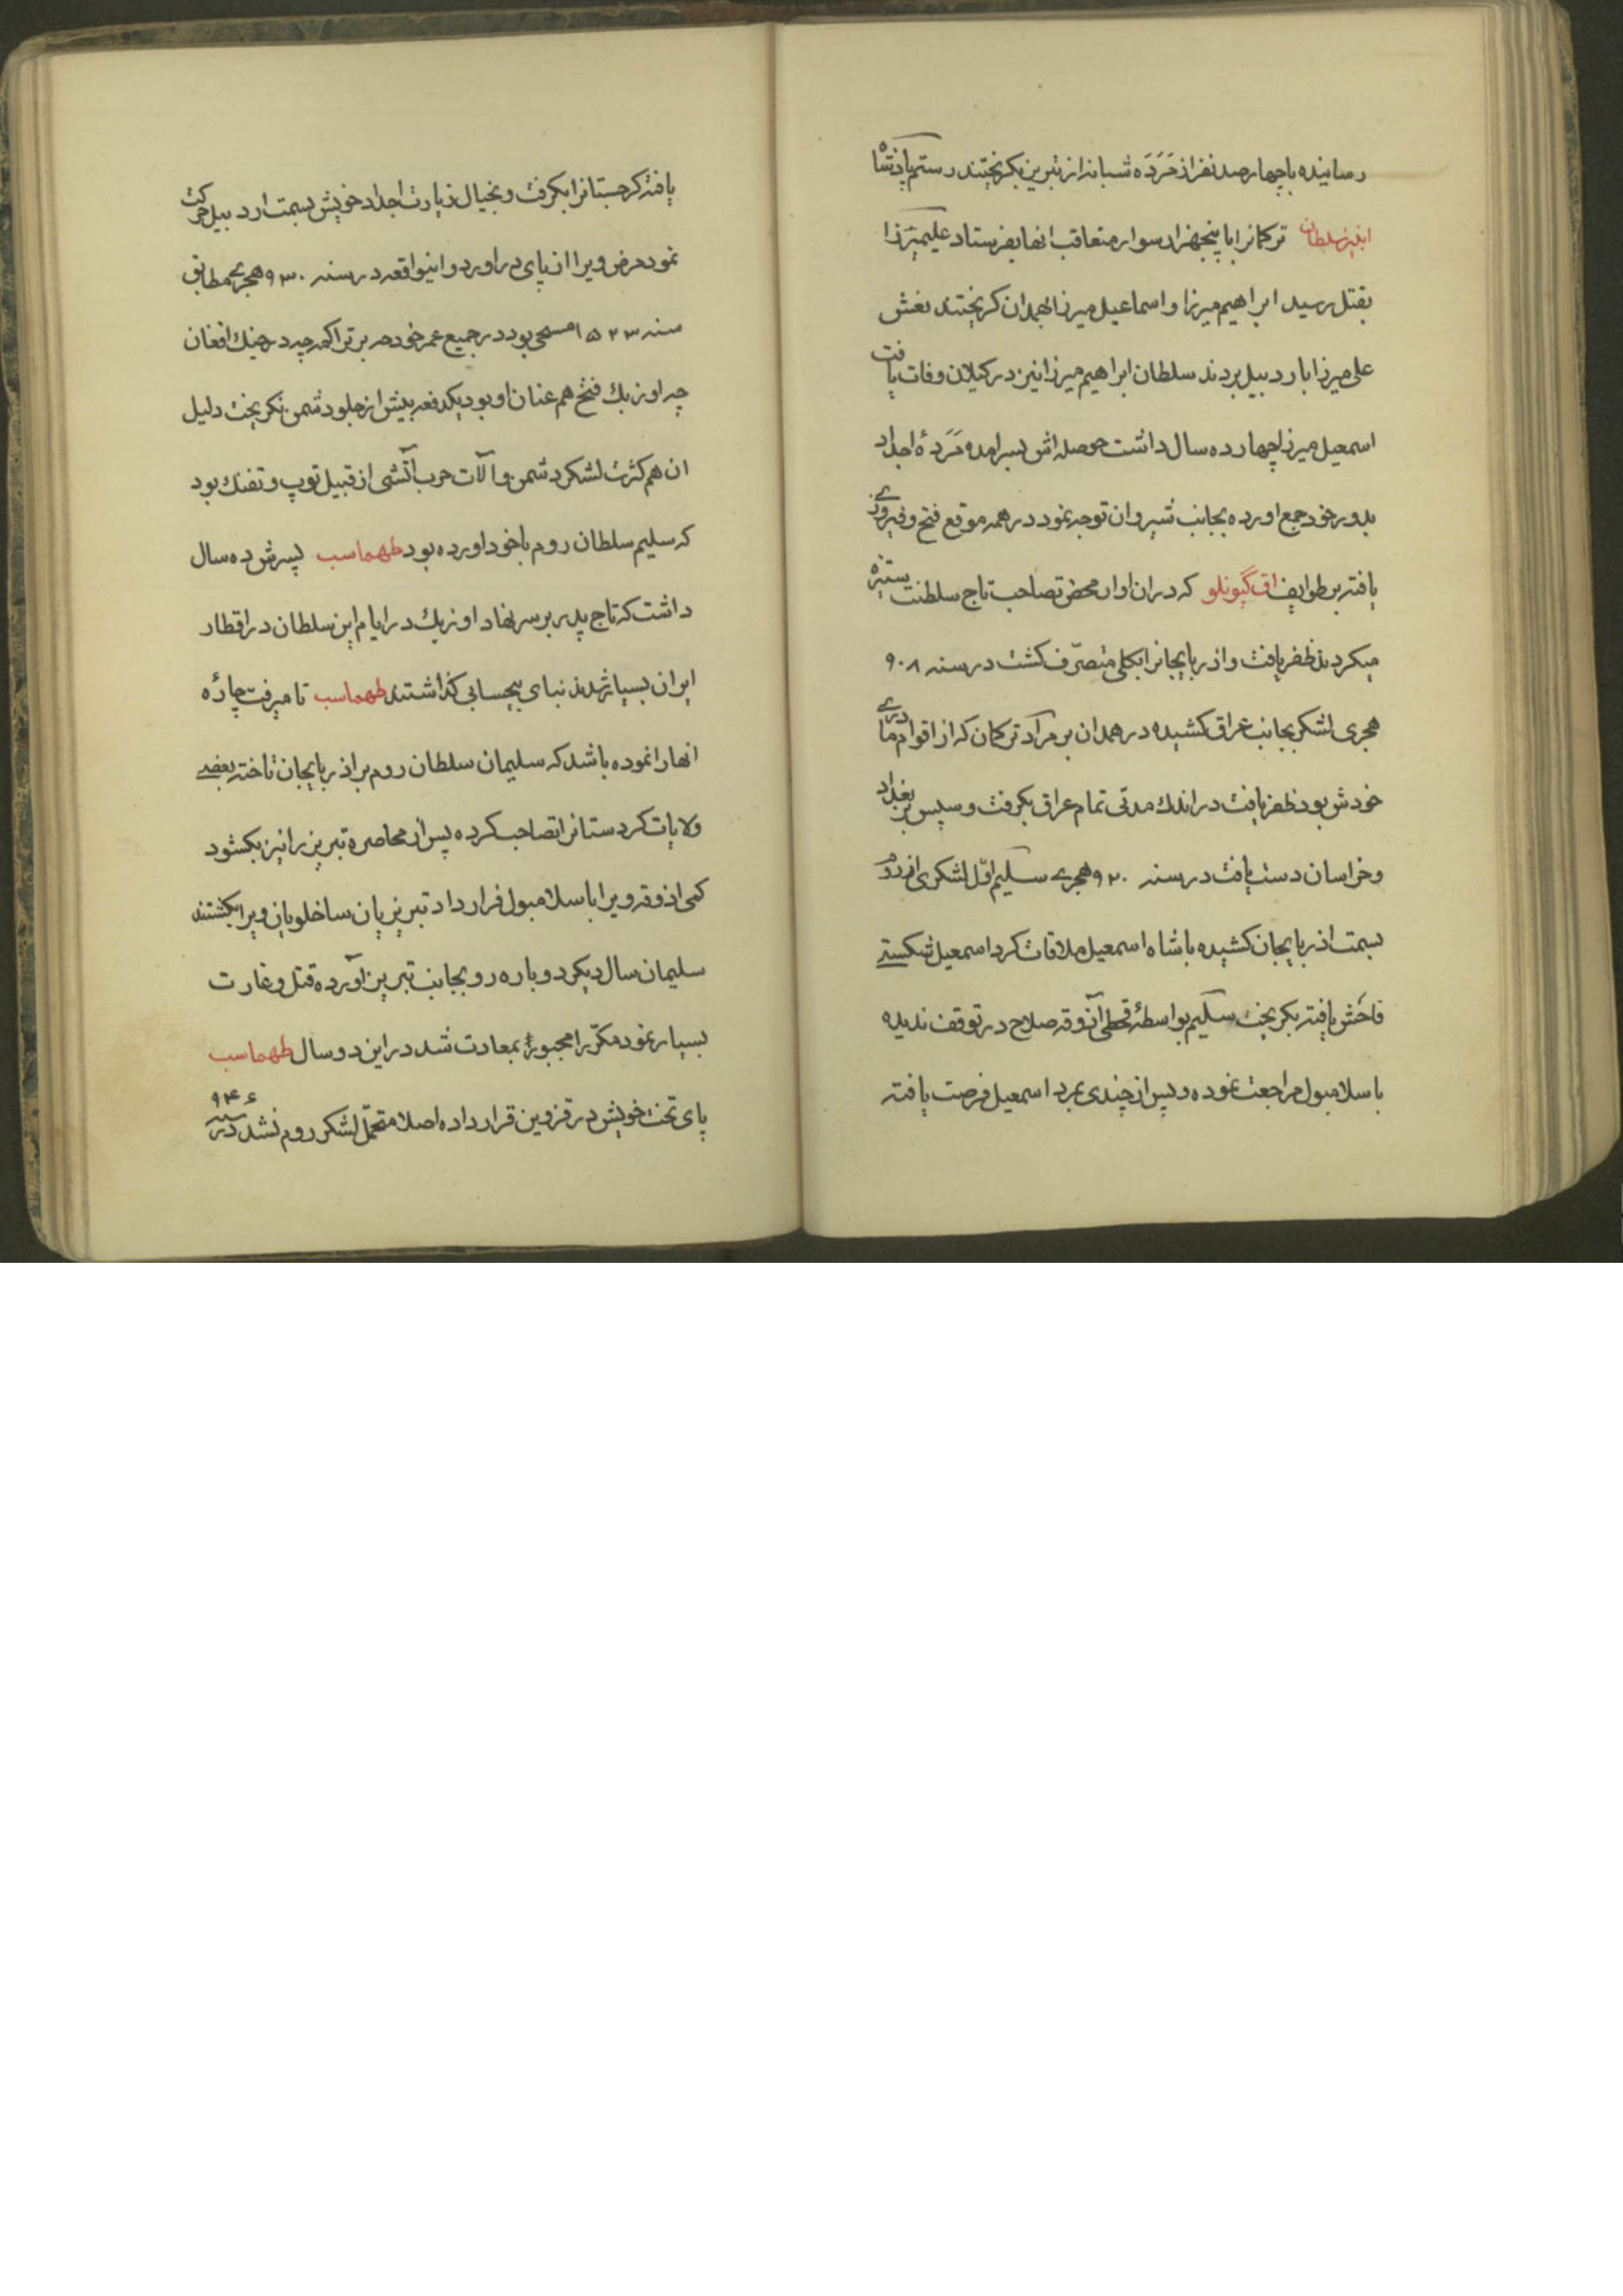 رسانیده باچهارصد نفر از مَرَدَه شبانه از تبریز بکریختند رستم پادشاه
ترکمانرا با پنجهزار سوار متعاقب انها بفرستاد علیمیرزا
بقتل رسید ابراهیم میرزا و اسماعیل میرزا بهمدان کریختند نعش
علی میرزا باردبیل بردند سلطان ابراهیم میرزا نیز در کیلان وفات یافت
اسمعیل میرزا چهارده سال داشت حوصله اش بسر امده مَرَدهٔ اجداد
بدور خود جمع اورده بجانب شیروان توجه نمود در همه موقع فتح و فیروزی
یافته بر طوایف اق گیونلو که دران اوان محض تصاحب تاج سلطنت ستیزه
میکردند ظفر یافت و اذربایجانرا بکلی متصرّف کشت در سنه ۹۰۸
هجری لشکر بجانب عراق کشیده در همدان بر مراد ترکمان که از اقوام مادری
خودش بود ظفر یافت در اندك مدتی تمام عراق بکرفت و سپس بر بغداد
و خراسان دست یافت در سنه ۹۲۰ هجری سلیم اوّل لشکری از روم
بسمت اذربایجان کشیده باشاه اسمعیل ملاقات کرد اسمعیل شکستی
فاحش یافته بکریخت سلیم بواسطهٔ قحطی آذوقه صلاح در توقف ندیده
باسلامبول مراجعت نموده و پس از چندی بمرد اسمعیل فرصت یافته
یافته کرجستانرا بکرفت و بخیال زیارت اجداد خویش بسمت اردبیل حرکت
نمود مرض ویرا از پای در اورد و اینواقعه در سنه ۹۳۰ هجری مطابق
سنه ۱۵۲۳ مسحی بود در جمیع عمر خود حربر تراکمه چه در جنك افغان
چه اوزبك فتح هم عنان او بود یکدفعه بیش از جلو دشمن نکریخت دلیل
ان هم کثرت لشکر دشمن و آلات حرب آتشی از قبیل توپ و تفنك بود
که سلیم سلطان روم باخود اورده بود طهماسب پسرش ده سال
داشت که تاج پدر بر سر نهاد اوزبك در ایام این سلطان در اقطار
ایران بسیار شدند بنای بیحسابی کذاشتند طهماسب تا میرفت چارهٔ
انها را نموده باشد که سلیمان سلطان روم بر اذربایجان تاخته بعضی
ولایات کردستانرا تصاحب کرده پس از محاصره تبریز را نیز بکشود
کمی اذوقه ویرا باسلامبول فرار داد تبریزیان ساخلویان ویرا بکشتند
سلیمان سال دیکر دوباره رو بجانب تبریز آورده قتل و غارت
بسیار نمود مکرّر مجبوراً بمعاودت شد در این دو سال طهماسب
پای تخت خویش در قزوین قرار داده اصلا متحمّل لشکر روم نشد در سنه ۹۴۶